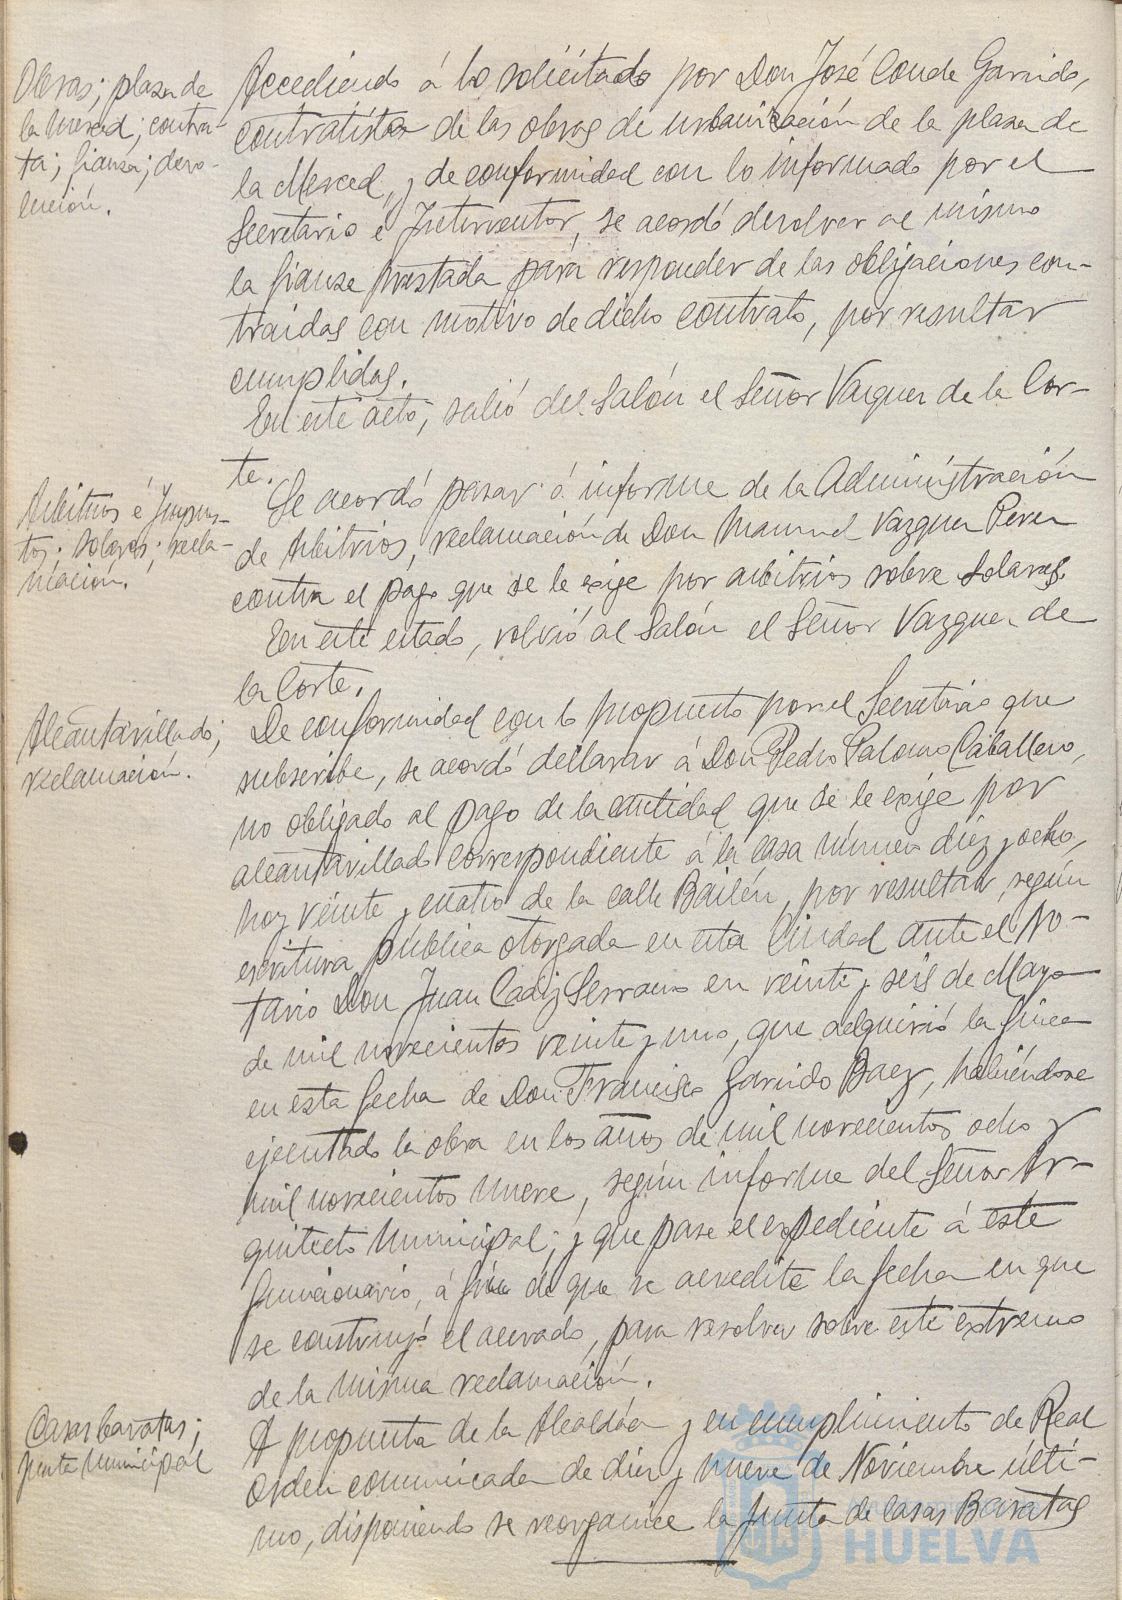 Obras; plaza de
la Merced; contra-
ta; fianza; devo-
lución.
Accediendo á lo solicitado por Don José Conde Garrido,
contratista de las obras de urbanización de la plaza de
la Merced, y de conformidad con lo informado por el
Secretario é Interventor, se acordó devolver al mismo
la fianza prestada para responder de las obligaciones con-
traidas con motivo de dicho contrato, por resultar
cumplidas.
En este acto, salió del Salón el Señor Vazquez de la Cor-
te.
Arbitrios é Impues-
tos; solares; recla-
mación.
Se acordó pasar á informe de la Administración
de Arbitrios, reclamación de Don Manuel Vazquez Perez
contra el pago que se le exige por arbitrios sobre solares.
En este estado, volvió al Salón el Señor Vazquez de
la Corte.
Alcantarillado;
reclamación.
De conformidad con lo propuesto por el Secretario que
subscribe, se acordó declarar á Don Pedro Palomo Caballero,
no obligado al pago de la cantidad que se le exige por
alcantarillado correspondiente á la casa número diez y ocho,
hoy veinte y cuatro de la calle Bailén, por resultar, según
escritura pública otorgada en esta Ciudad ante el No-
tario Don Juan Cadiz Serrano en veinte y seis de Mayo
de mil novecientos veinte y uno, que adquirió la finca
en esta fecha de Don Francisco Garrido Baez, habiéndose
ejecutado la obra en los años de mil novecientos ocho y
mil novecientos nueve, según informe del Señor Ar-
quitecto Municipal; y que pase el expediente á este
funcionario, á fin de que se acredite la fecha en que
se construyó el acerado, para resolver sobre este extremo
de la misma reclamación.
Casas baratas;
Junta Municipal
A propuesta de la Alcaldía y en cumplimiento de Real
Orden comunicada de diez y nueve de Noviembre últi-
mo, disponiendo se reorganice la Junta de casas Baratas
HUELVA